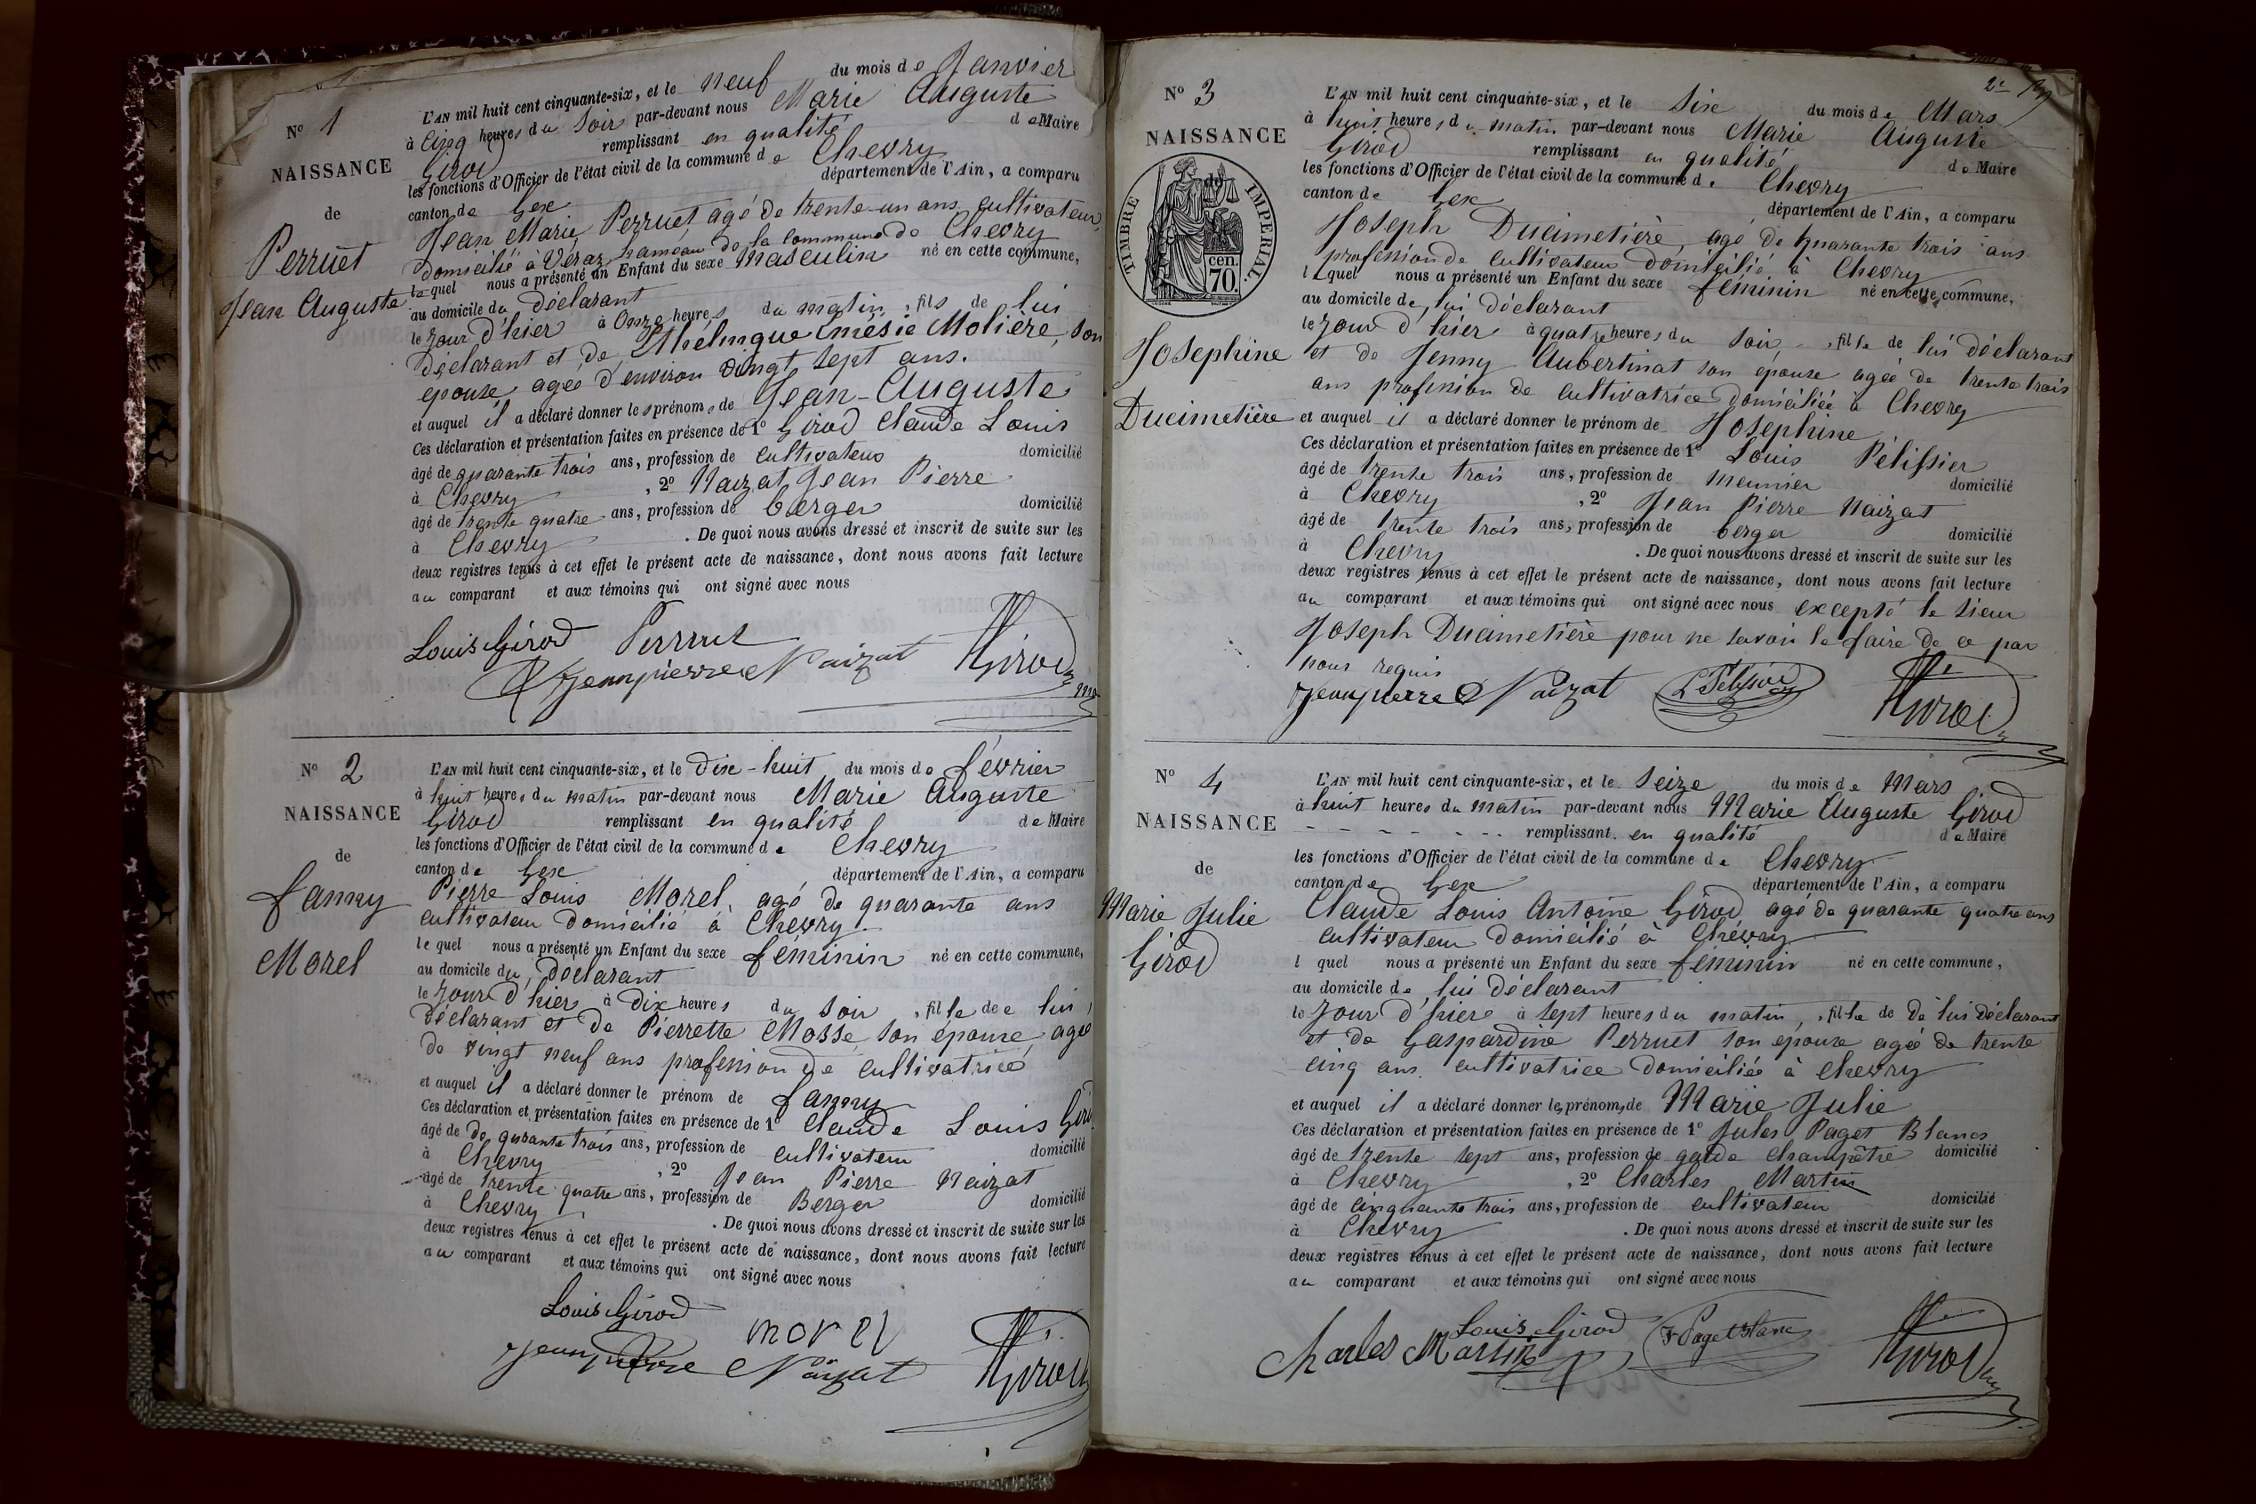 N° 1
NAISSANCE
de
Perruet
Jean Auguste
L'AN mil huit cent cinquante-six, et le neuf du mois de Janvier
à Cinq heures du Soir par-devant nous Marie Auguste
Girod remplissant en qualité de Maire
les fonctions d'Officier de l'état civil de la commune de Chevry
canton de Gex département de l'Ain, a comparu
Jean Marie Perruet, agé de trente-un ans, cultivateur,
domicilié à Véraz hameau de la commune de Chevry
lequel nous a présenté un Enfant du sexe masculin né en cette commune,
au domicile du déclarant
le jour d'hier à Onze heures du matin, fils de lui
déclarant et de Molière, son
épouse, agée d'environ vingt sept ans.
et auquel il a déclaré donner les prénoms de Jean-Auguste
Ces déclaration et présentation faites en présence de 1° Girod Claude Louis
âgé de quarante trois ans, profession de cultivateur domicilié
à Chevry, 2° Naizat Jean Pierre
âgé de trente quatre ans, profession de berger domicilié
à Chevry. De quoi nous avons dressé et inscrit de suite sur les
deux registres tenus à cet effet le présent acte de naissance, dont nous avons fait lecture
au comparant et aux témoins qui ont signé avec nous
Louis Girod Perruet
Jean pierre Naizat Girod
N° 2
NAISSANCE
de
Fanny
Morel
L'AN mil huit cent cinquante-six, et le dix-huit du mois de février
à huit heures du matin par-devant nous Marie Auguste
Girod remplissant en qualité de Maire
les fonctions d'Officier de l'état civil de la commune de Chevry
canton de Gex département de l'Ain, a comparu
Pierre Louis Morel, agé de quarante ans
cultivateur domicilié à Chevry
lequel nous a présenté un Enfant du sexe féminin né en cette commune,
au domicile du déclarant
le jour d'hier à dix heures du soir, fille dee lui,
déclarant et de Pierrette Mosse, son épouse agée
de vingt neuf ans profession de cultivatrice
et auquel il a déclaré donner le prénom de Fanny
Ces déclaration et présentation faites en présence de 1° Claude Louis Giro
âgé de de quarante trois ans, profession de cultivateur domicilié
à Chevry, 2° Jean Pierre Naizat
âgé de trente quatre ans, profession de Berger domicilié
à Chevry. De quoi nous avons dressé et inscrit de suite sur les
deux registres tenus à cet effet le présent acte de naissance, dont nous avons fait lecture
au comparant et aux témoins qui ont signé avec nous
Louis Girod
morel
Jean pierre Naizat Girod
2e
N° 3
NAISSANCE
de
TIMBRE IMPERIAL.
70. cen.
Josephine
Ducimetière
L'AN mil huit cent cinquante-six, et le Six du mois de Mars
à huit heures du matin par-devant nous Marie Auguste
Girod remplissant en qualité de Maire
les fonctions d'Officier de l'état civil de la commune de Chevry
canton de Gex département de l'Ain, a comparu
Joseph Ducimetière, agé de quarante trois ans
profession de cultivateur domicilié à Chevry
l quel nous a présenté un Enfant du sexe féminin né en cette commune,
au domicile de lui déclarant
le jour d'hier à quatre heures du Soir, fille de lui déclarant
et de Jenny Aubertinat son épouse agée de trente trois
ans profession de cultivatrice domiciliée à Chevry
et auquel il a déclaré donner le prénom de Josephine
Ces déclaration et présentation faites en présence de 1° Louis Pélissier
âgé de trente trois ans, profession de meunier domicilié
à Chevry, 2° Jean Pierre Naizat
âgé de trente trois ans, profession de berger domicilié
à Chevry. De quoi nous avons dressé et inscrit de suite sur les
deux registres tenus à cet effet le présent acte de naissance, dont nous avons fait lecture
au comparant et aux témoins qui ont signé avec nous excepté le sieur
Joseph Ducimetière pour ne savoir le faire de ce par
nous requis
Jean pierre Naizat Girod
N° 4
NAISSANCE
de
Marie Julie
Girod
L'AN mil huit cent cinquante-six, et le Seize du mois de Mars
à huit heures du matin par-devant nous Marie Auguste Girod
remplissant en qualité de Maire
les fonctions d'Officier de l'état civil de la commune de Chevry
canton de Gex département de l'Ain, a comparu
Claude Louis Antoine Girod agé de quarante quatre ans
cultivateur domicilié à Chevry
l quel nous a présenté un Enfant du sexe féminin né en cette commune,
au domicile de lui déclarant
le jour d'hiere à sept heures du matin, fille de de lui déclarant
et de Gaspardine Perruet son épouse agée de trente
cinq ans cultivatrice domiciliée à Chevry
et auquel il a déclaré donner les prénoms de Marie Julie
Ces déclaration et présentation faites en présence de 1° Jules Paget Blanc
âgé de trente sept ans, profession de garde champêtre domicilié
à Chevry, 2° Charles Martin
âgé de cinquante trois ans, profession de cultivateur domicilié
à Chevry. De quoi nous avons dressé et inscrit de suite sur les
deux registres tenus à cet effet le présent acte de naissance, dont nous avons fait lecture
au comparant et aux témoins qui ont signé avec nous
Louis Girod
Charles Martin J Paget Blanc Girod